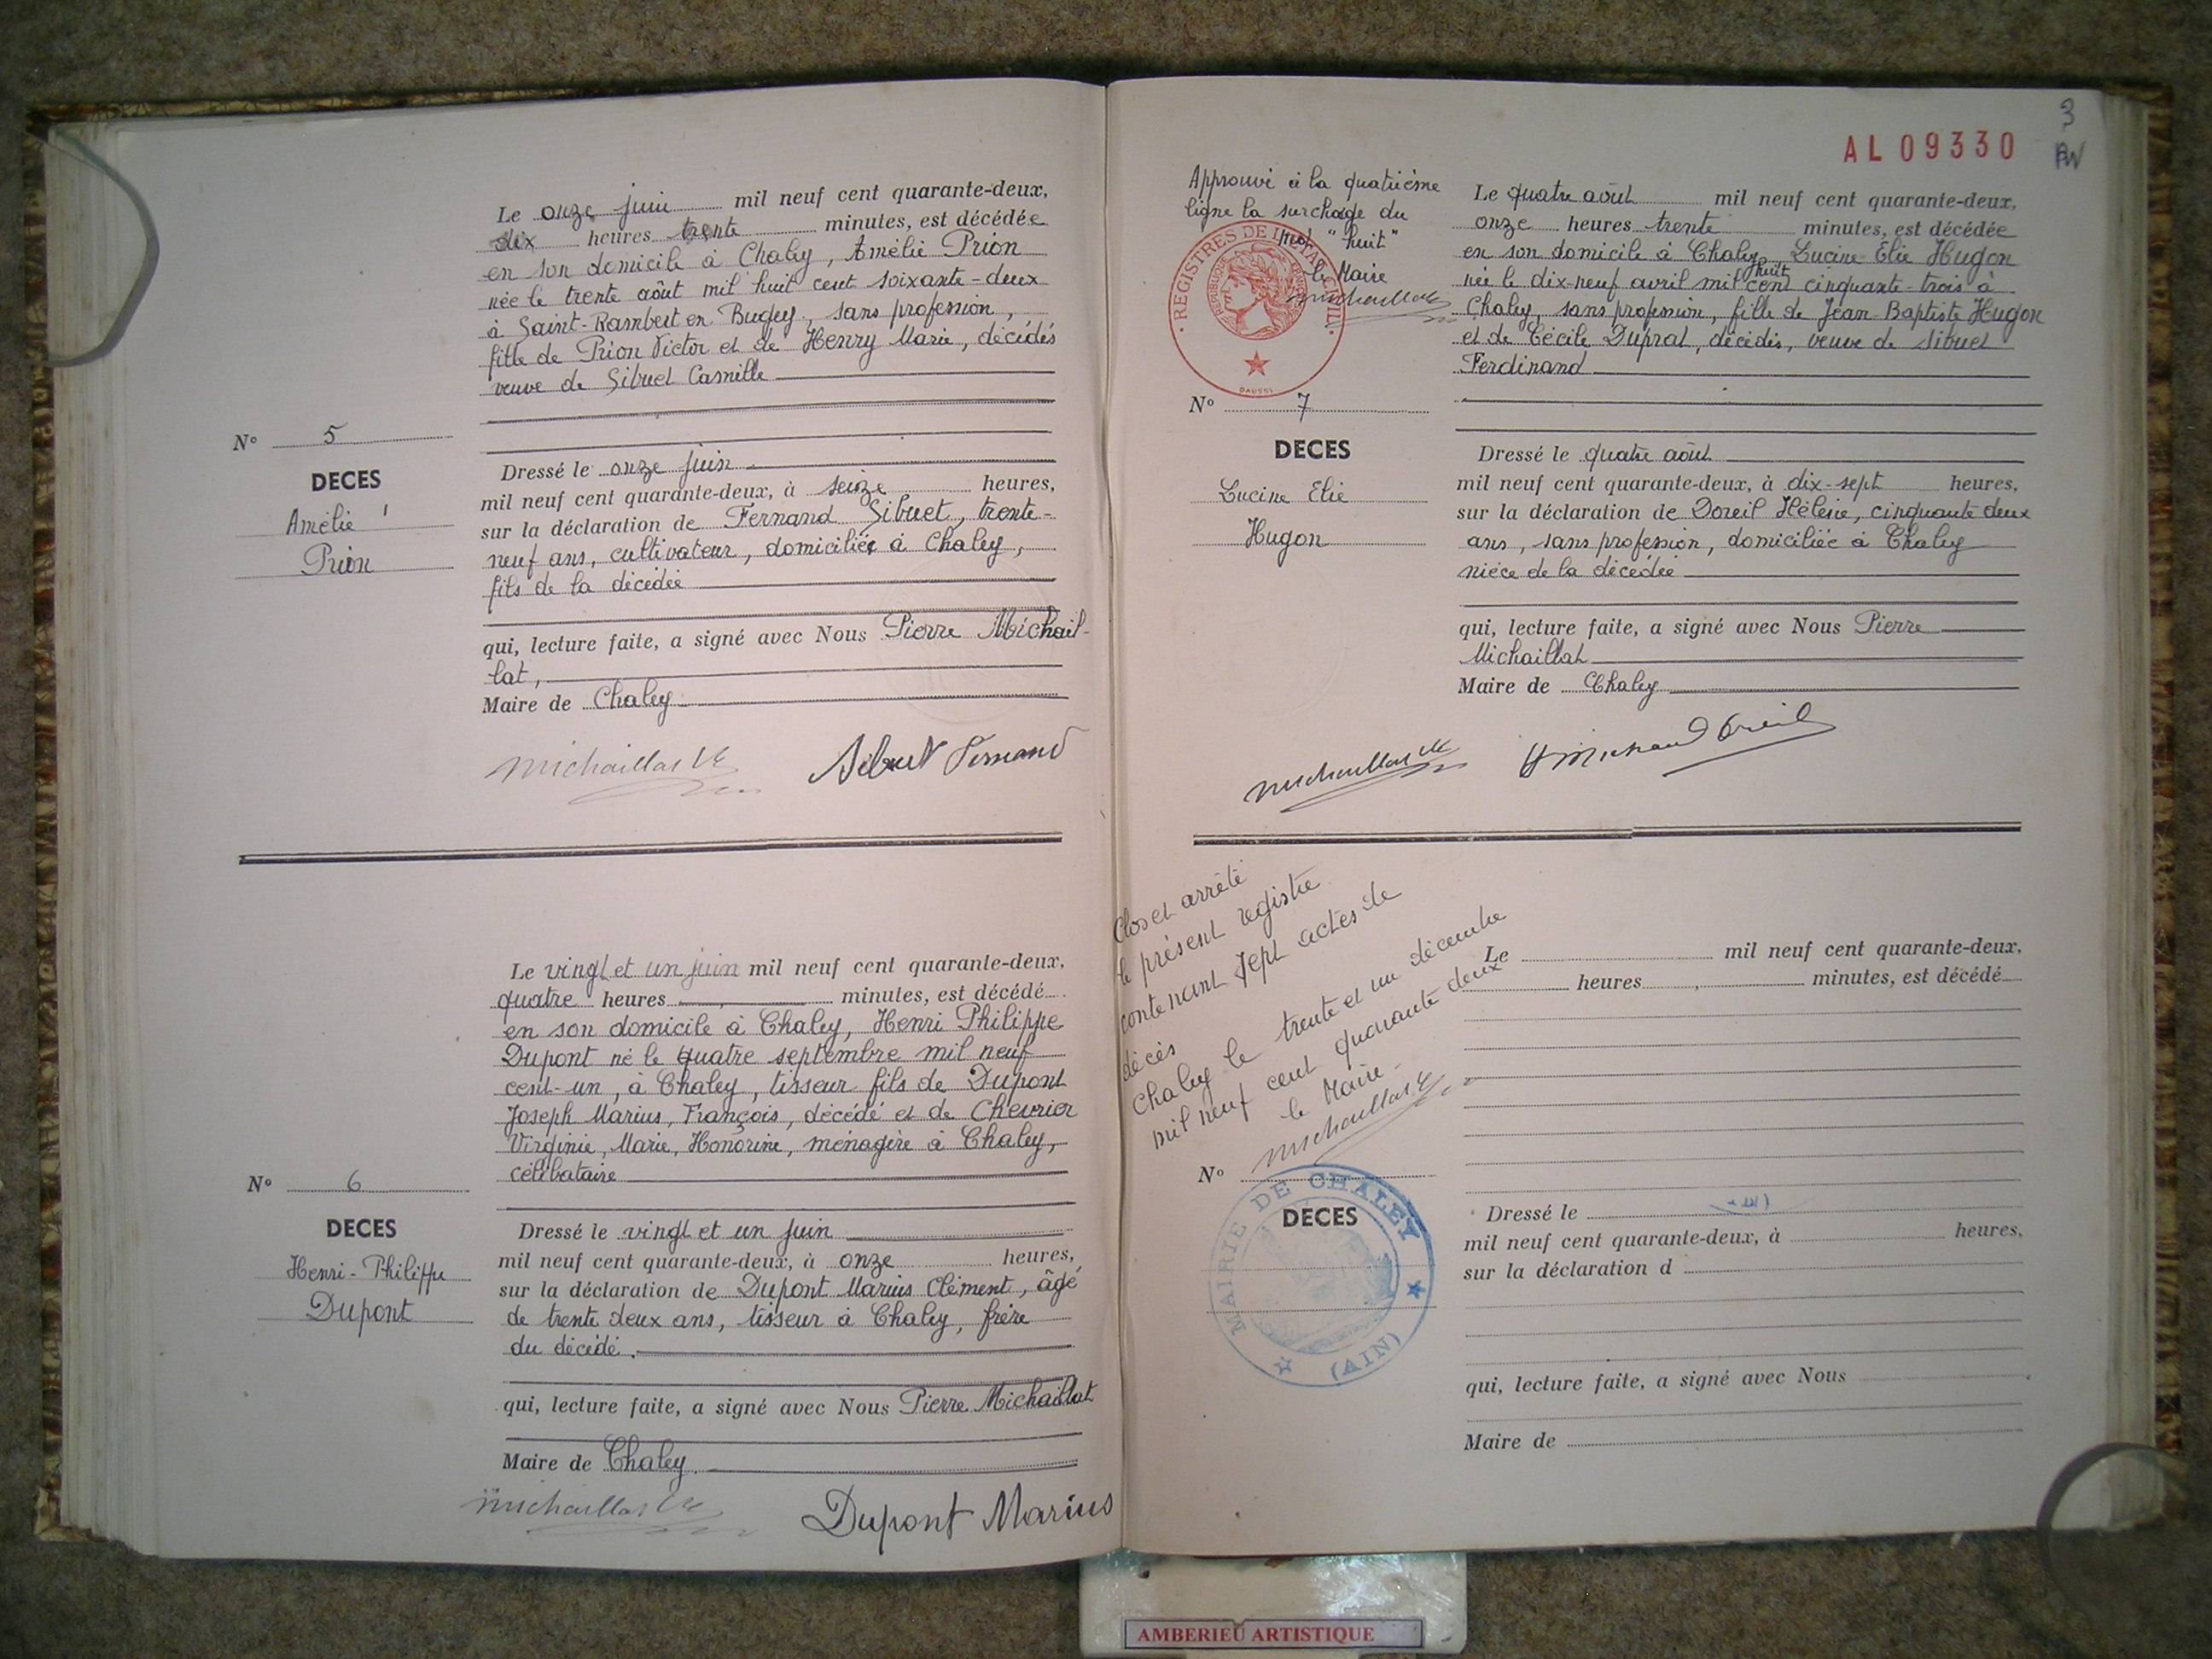 Le onze juin mil neuf cent quarante-deux,
dix heures trente minutes, est décédée
en son domicile à Chaley, Amélie Prion
née le trente août mil huit cent soixante-deux
à Saint-Rambert en Bugey, sans profession,
fille de Prion Victor et de Henry Marie, décédés
veuve de Sibuet Camille
N° 5
DECES
Amélie
Prion
Dressé le onze juin
mil neuf cent quarante-deux, à seize heures,
sur la déclaration de Fernand Sibuet, trente-
neuf ans, cultivateur, domiciliée à Chaley,
fils de la décédée
qui, lecture faite, a signé avec Nous Pierre Michail-
lat,
Maire de Chaley
Michaillat
Sibuet Fernand
Le vingt et un juin mil neuf cent quarante-deux,
quatre heures minutes, est décédé
en son domicile à Chaley, Henri Philippe
Dupont né le quatre septembre mil neuf
cent-un, à Chaley, tisseur fils de Dupont
Joseph Marius, François, décédé et de Chevrier
Virginie, Marie, Honorine, ménagère à Chaley,
célibataire
N° 6
DECES
Henri-Philippe
Dupont
Dressé le vingt et un juin
mil neuf cent quarante-deux, à onze heures,
sur la déclaration de Dupont Marius Clément, âgé
de trente deux ans, tisseur à Chaley, frère
du décédé.
qui, lecture faite, a signé avec Nous Pierre Michaillat
Maire de Chaley
Michaillat
Dupont Marius
3
AL 09330
Approuvé à la quatrième
ligne la surcharge du
mot "huit"
le Maire
Michaillat
REGISTRES DE L'ETAT CIVIL
DAUSSI
Le quatre août mil neuf cent quarante-deux,
onze heures trente minutes, est décédée
en son domicile à Chaley, Lucine Elie Hugon
huit
née le dix-neuf avril mil cent cinquante-trois à
Chaley, sans profession, fille de Jean Baptiste Hugon
et de Cécile Duprat, décédés, veuve de Sibuet
Ferdinand
N° 7
DECES
Lucine Elie
Hugon
Dressé le quatre août
mil neuf cent quarante-deux, à dix-sept heures,
sur la déclaration de Doreil Hélène, cinquante deux
ans, sans profession, domiciliée à Chaley
nièce de la décédée
qui, lecture faite, a signé avec Nous Pierre
Michaillat
Maire de Chaley
Michaillat
Clos et arrêté
le présent registre
contenant sept actes de
décès
Chaley le trente et un décembre
mil neuf cent quarante deux
le Maire
Michaillat
Le mil neuf cent quarante-deux,
heures minutes, est décédé
N°
DECES
MAIRIE DE CHALEY
(AIN)
Dressé le
mil neuf cent quarante-deux, à heures,
sur la déclaration d
qui, lecture faite, a signé avec Nous
Maire de
AMBERIEU ARTISTIQUE